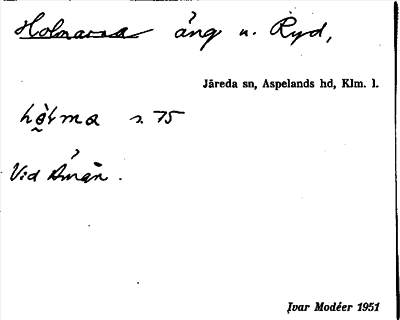 Holmarna äng u. Ryd,
Järeda sn, Aspelands hd, Klm. l.
s. 75
Vid Åmån.
Ivar Modéer 1951